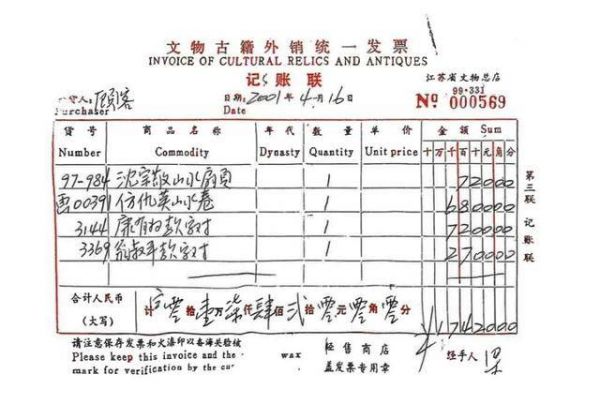 文物古籍外销统一发票
INVOICE OF CULTURAL RELICS AND ANTIQUES
记账联
江苏省文物总店
99·331
No 000569
人: 顾客
Purchaker
日期: 2001 年 4 月 16 日
Date
货号 商品名称 年代 数量 单价 金额 Sum
Number Commodity Dynasty Quantity Unit price 十万千百十元角分
97-984 沈宗敬山水扇页 1 72000
画00391 仿仇英山水卷 1 680000
3144 康有为款字对 1 720000
3369 翁叔平款字对 1 270000
合计人民币
(大写)
计 零拾壹万柒仟肆佰贰拾零元零角零分
¥1742000
第三联 记账联
请注意保存发票和火漆印以备海关验核
Please keep this invoice and the wax
mark for verification by the cu
经售商店
盖发票专用章
经手人